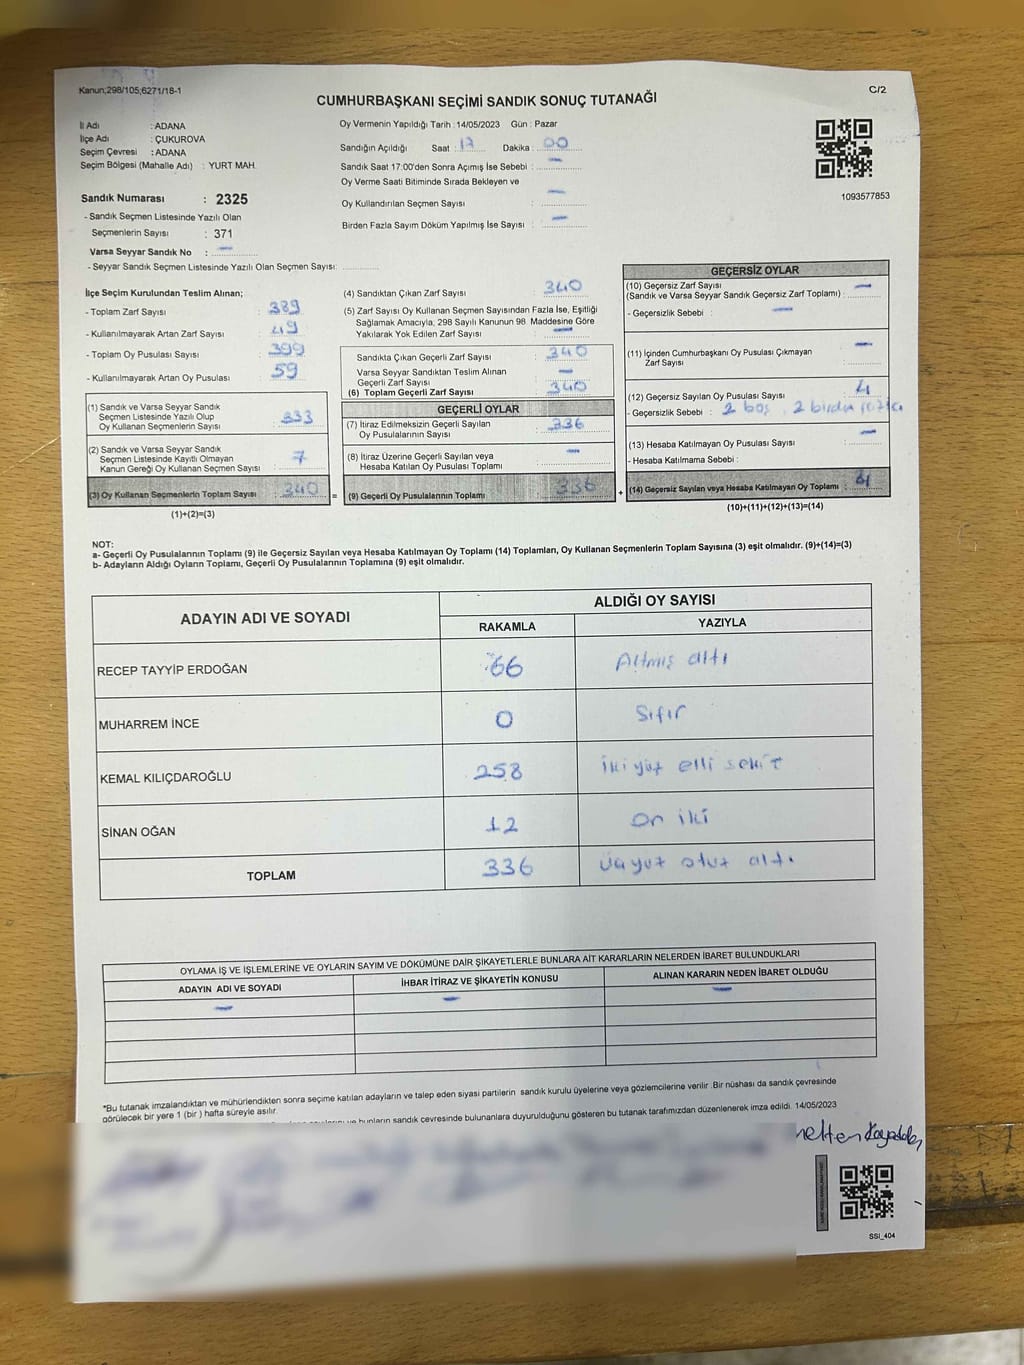 Kanun;298/105;6271/18-1
C/2
CUMHURBAŞKANI SEÇİMİ SANDIK SONUÇ TUTANAĞI
İl Adı : ADANA
İlçe Adı : ÇUKUROVA
Seçim Çevresi : ADANA
Seçim Bölgesi (Mahalle Adı) : YURT MAH.
Sandık Numarası : 2325
- Sandık Seçmen Listesinde Yazılı Olan
Seçmenlerin Sayısı : 371
Varsa Seyyar Sandık No : —
- Seyyar Sandık Seçmen Listesinde Yazılı Olan Seçmen Sayısı:
Oy Vermenin Yapıldığı Tarih :14/05/2023 Gün : Pazar
Sandığın Açıldığı Saat : 17 Dakika : 00
Sandık Saat 17:00'den Sonra Açımış İse Sebebi : —
Oy Verme Saati Bitiminde Sırada Bekleyen ve
Oy Kullandırılan Seçmen Sayısı : —
Birden Fazla Sayım Döküm Yapılmış İse Sayısı : —
1093577853
İlçe Seçim Kurulundan Teslim Alınan;
- Toplam Zarf Sayısı : 389
- Kullanılmayarak Artan Zarf Sayısı : 49
- Toplam Oy Pusulası Sayısı : 399
- Kullanılmayarak Artan Oy Pusulası : 59
(1) Sandık ve Varsa Seyyar Sandık
Seçmen Listesinde Yazılı Olup
Oy Kullanan Seçmenlerin Sayısı : 333
(2) Sandık ve Varsa Seyyar Sandık
Seçmen Listesinde Kayıtlı Olmayan
Kanun Gereği Oy Kullanan Seçmen Sayısı : 7
(3) Oy Kullanan Seçmenlerin Toplam Sayısı : 340
(1)+(2)=(3)
=
(4) Sandıktan Çıkan Zarf Sayısı : 340
(5) Zarf Sayısı Oy Kullanan Seçmen Sayısından Fazla İse, Eşitliği
Sağlamak Amacıyla, 298 Sayılı Kanunun 98. Maddesine Göre
Yakılarak Yok Edilen Zarf Sayısı : —
Sandıkta Çıkan Geçerli Zarf Sayısı : 340
Varsa Seyyar Sandıktan Teslim Alınan
Geçerli Zarf Sayısı : —
(6) Toplam Geçerli Zarf Sayısı : 340
GEÇERLİ OYLAR
(7) İtiraz Edilmeksizin Geçerli Sayılan
Oy Pusulalarının Sayısı : 336
(8) İtiraz Üzerine Geçerli Sayılan veya
Hesaba Katılan Oy Pusulası Toplamı : —
(9) Geçerli Oy Pusulalarının Toplamı : 336
+
GEÇERSİZ OYLAR
(10) Geçersiz Zarf Sayısı
(Sandık ve Varsa Seyyar Sandık Geçersiz Zarf Toplamı) : —
- Geçersizlik Sebebi : —
(11) İçinden Cumhurbaşkanı Oy Pusulası Çıkmayan
Zarf Sayısı : —
(12) Geçersiz Sayılan Oy Pusulası Sayısı : 4
- Geçersizlik Sebebi : 2 boş, 2 birden
(13) Hesaba Katılmayan Oy Pusulası Sayısı : —
- Hesaba Katılmama Sebebi :
(14) Geçersiz Sayılan veya Hesaba Katılmayan Oy Toplamı : 4
(10)+(11)+(12)+(13)=(14)
NOT:
a- Geçerli Oy Pusulalarının Toplamı (9) ile Geçersiz Sayılan veya Hesaba Katılmayan Oy Toplamı (14) Toplamları, Oy Kullanan Seçmenlerin Toplam Sayısına (3) eşit olmalıdır. (9)+(14)=(3)
b- Adayların Aldığı Oyların Toplamı, Geçerli Oy Pusulalarının Toplamına (9) eşit olmalıdır.
ADAYIN ADI VE SOYADI
ALDIĞI OY SAYISI
RAKAMLA YAZIYLA
RECEP TAYYİP ERDOĞAN 66 Altmış altı
MUHARREM İNCE 0 Sıfır
KEMAL KILIÇDAROĞLU 258 İki yüz elli sekiz
SİNAN OĞAN 12 on iki
TOPLAM 336 Üçyüz otuz altı
OYLAMA İŞ VE İŞLEMLERİNE VE OYLARIN SAYIM VE DÖKÜMÜNE DAİR ŞİKAYETLERLE BUNLARA AİT KARARLARIN NELERDEN İBARET BULUNDUKLARI
ADAYIN ADI VE SOYADI İHBAR İTİRAZ VE ŞİKAYETİN KONUSU ALINAN KARARIN NEDEN İBARET OLDUĞU
— — —
*Bu tutanak imzalandıktan ve mühürlendikten sonra seçime katılan adayların ve talep eden siyasi partilerin sandık kurulu üyelerine veya gözlemcilerine verilir .Bir nüshası da sandık çevresinde
görülecek bir yere 1 (bir ) hafta süreyle asılır.
bunların sandık çevresinde bulunanlara duyurulduğunu gösteren bu tutanak tarafımızdan düzenlenerek imza edildi. 14/05/2023
SSI_404